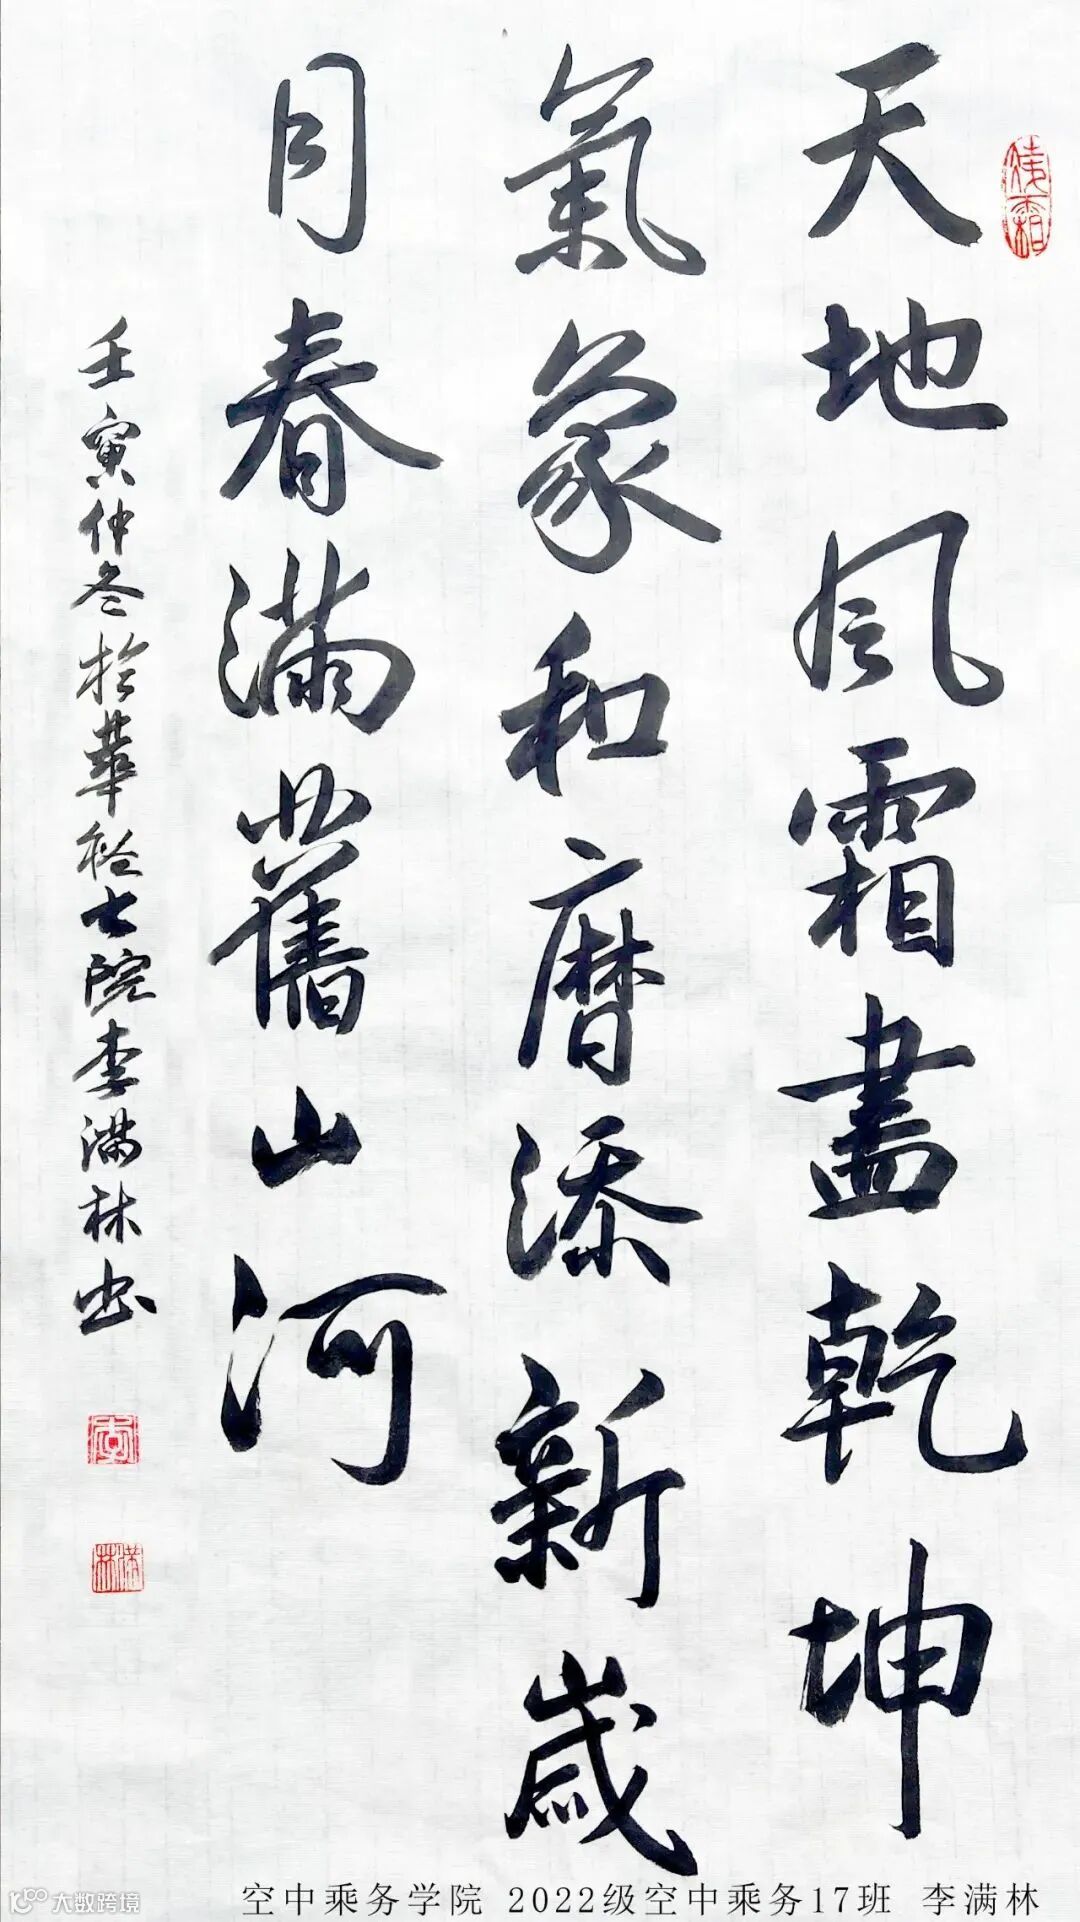 天地风霜盡乾坤
氣象和曆添新歲
月春滿舊山河
壬寅仲冬於華 士院李满林书
李
满林
空中乘务学院 2022级空中乘务17班 李满林
大数跨境